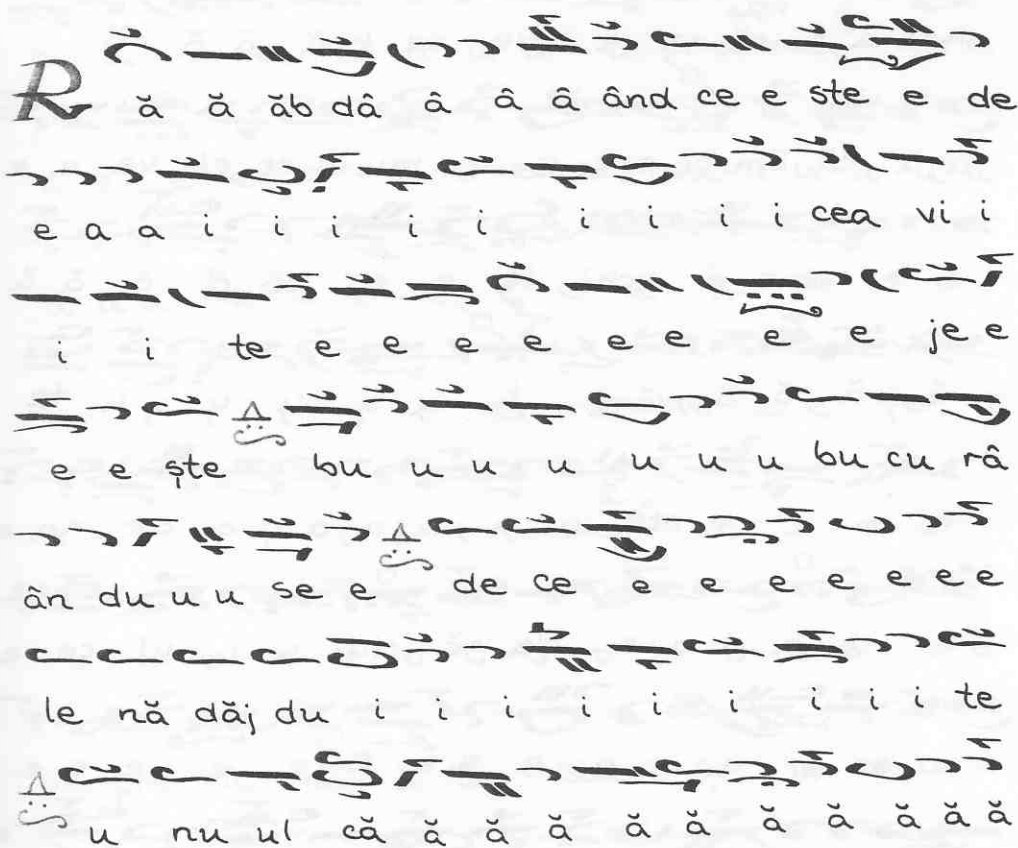 R ă ă ăb dâ â â â ând ce e ște e de
e a a i i i i i i i i i cea vi i
i i te e e e e e e e e je e
e e ște bu u u u u u u bu cu râ
ân du u u se e de ce e e e e e e e
le nă dăj du i i i i i i i i te
u nu ul că ă ă ă ă ă ă ă ă ă ă